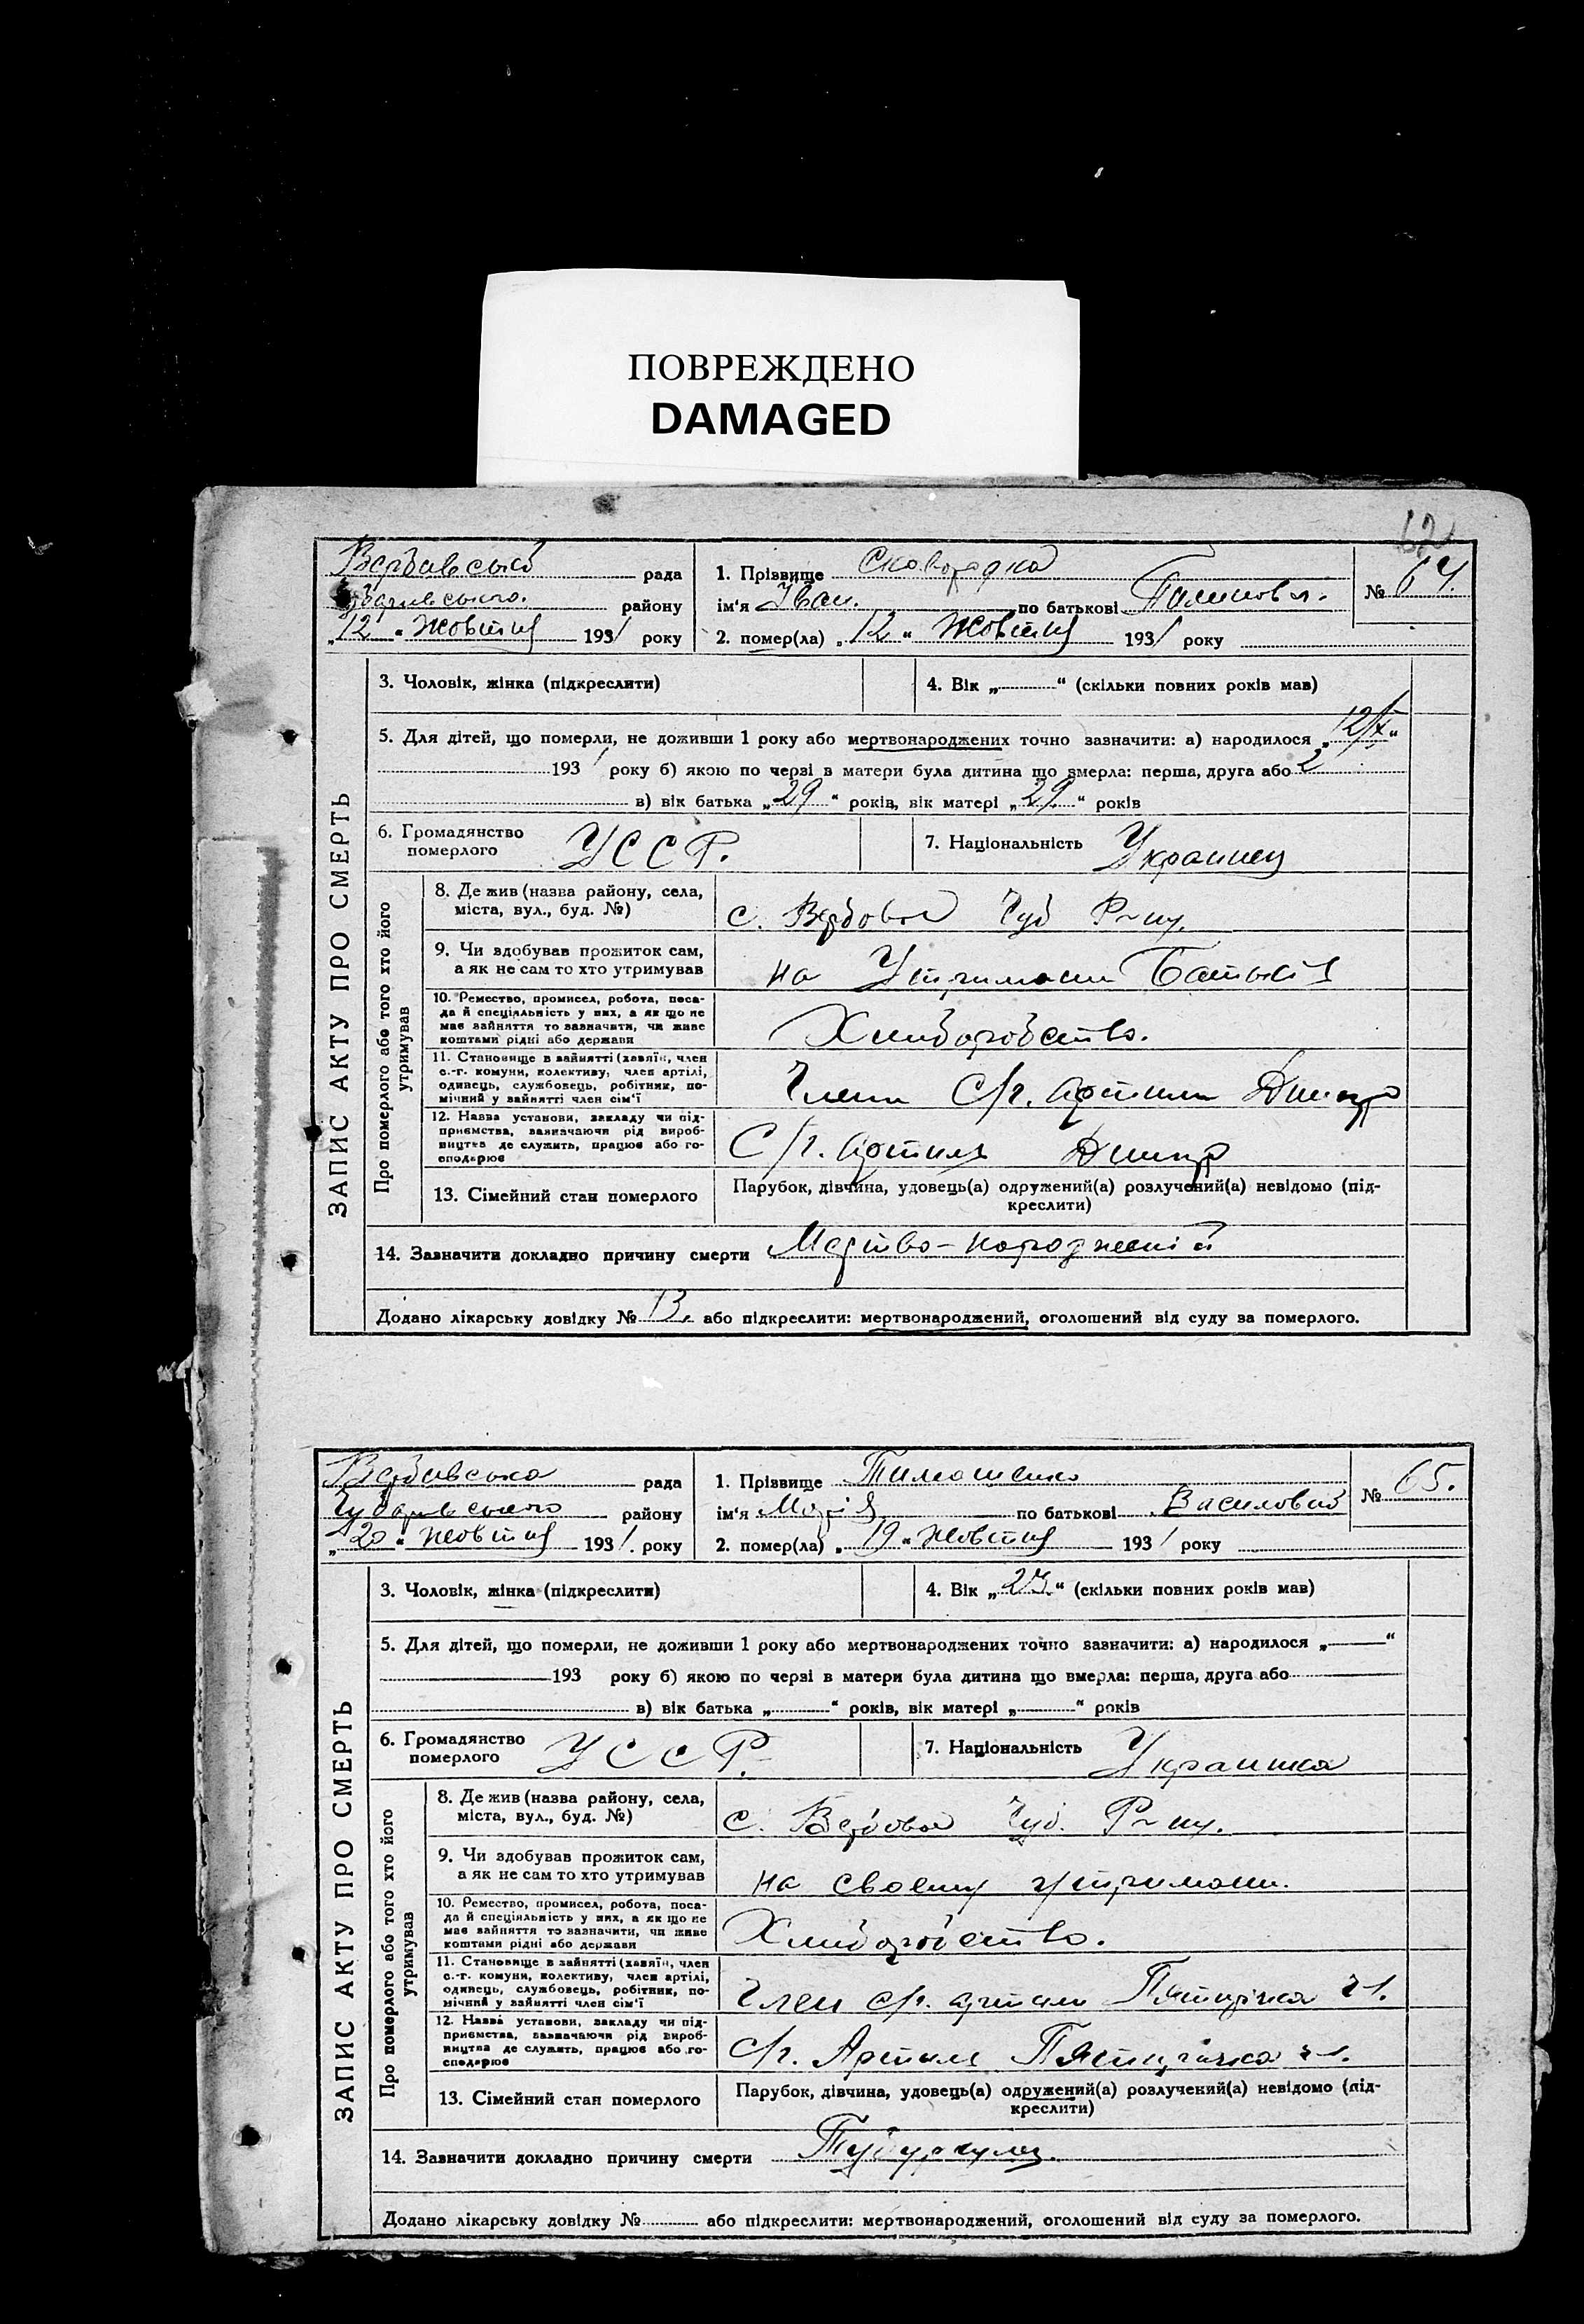 ПОВРЕЖДЕНО
DAMAGED
62
Вербивської рада
району
„12“ жовтня 1931 року
1. Прізвище Сковородка
ім'я Іван. по батькові
2. помер(ла) „12“ жовтня 1931 року
№ 64.
ЗАПИС АКТУ ПРО СМЕРТЬ
3. Чоловік, жінка (підкреслити)
4. Вік „ “ (скільки повних років мав)
5. Для дітей, що померли, не доживши 1 року або мертвонароджених точно зазначити: а) народилося „12/X“
1931 року б) якою по черзі в матери була дитина що вмерла: перша, друга або 2
в) вік батька „29“ років, вік матері „29“ років
6. Громадянство
померлого УССР.
7. Національність Украинец
Про померлого або того хто його
утримував
8. Де жив (назва району, села,
міста, вул., буд. №)
с. Вербовое Чуб Р-ну.
9. Чи здобував прожиток сам,
а як не сам то хто утримував
на Утримани Батькив
10. Ремество, промисел, робота, поса-
да й спеціяльність у них, а як що не
має зайняття то зазначити, чи живе
коштами рідні або держави
Хлиборобство.
11. Становище в зайнятті (хазяїн, член
с.-г. комуни, колективу, член артілі,
одинець, службовець, робітник, по-
мічний у зайнятті член сім'ї
Член С/г. артили Днипр
12. Назва установи, закладу чи під-
приємства, зазначаючи рід вироб-
ництва де служить, працює або го-
сподарює
С/г. артиль Днипр
13. Сімейний стан померлого
Парубок, дівчина, удовець(а) одружений(а) розлучений(а) невідомо (під-
креслити)
14. Зазначити докладно причину смерти Мертво-народжений
Додано лікарську довідку № 13. або підкреслити: мертвонароджений, оголошений від суду за померлого.
Вербивська рада
Чубарівського району
„20“ жовтня 1931. року
1. Прізвище Тимошенко
ім'я Марія по батькові Василовна
2. помер(ла) „19“ жовтня 1931 року
№ 65.
ЗАПИС АКТУ ПРО СМЕРТЬ
3. Чоловік, жінка (підкреслити)
4. Вік „23“ (скільки повних років мав)
5. Для дітей, що померли, не доживши 1 року або мертвонароджених точно зазначити: а) народилося „ “
193 року б) якою по черзі в матери була дитина що вмерла: перша, друга або
в) вік батька „ “ років, вік матері „ “ років
6. Громадянство
померлого УССР.
7. Національність Украинка
Про померлого або того хто його
утримував
8. Де жив (назва району, села,
міста, вул., буд. №)
с. Вербовое Чуб. Р-ну.
9. Чи здобував прожиток сам,
а як не сам то хто утримував
на своему утримани.
10. Ремество, промисел, робота, поса-
да й спеціяльність у них, а як що не
має зайняття то зазначити, чи живе
коштами рідні або держави
Хлиборобство.
11. Становище в зайнятті (хазяїн, член
с.-г. комуни, колективу, член артілі,
одинець, службовець, робітник, по-
мічний у зайнятті член сім'ї
Член с/г. артили Пятирічка
12. Назва установи, закладу чи під-
приємства, зазначаючи рід вироб-
ництва де служить, працює або го-
сподарює
с/г. Артиль Пятирічка
13. Сімейний стан померлого
Парубок, дівчина, удовець(а) одружений(а) розлучений(а) невідомо (під-
креслити)
14. Зазначити докладно причину смерти Тубуркулез.
Додано лікарську довідку № або підкреслити: мертвонароджений, оголошений від суду за померлого.